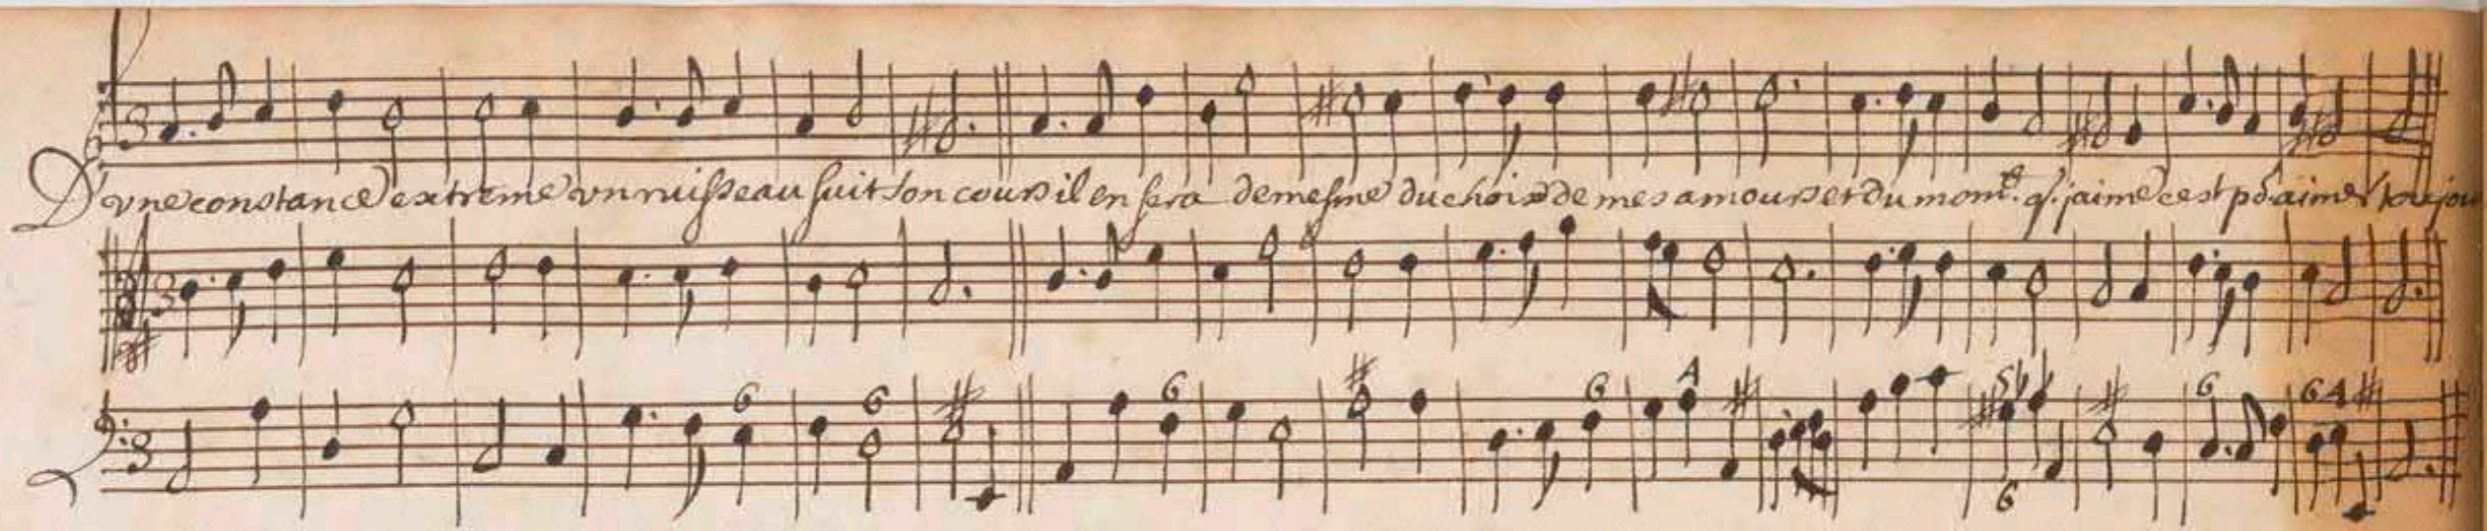 D'vne constance extreme vn ruisseau suit son cours il en sera de mesme du choix de mes amours et du mom.t q. j'aime c'est pr. aimer toujou